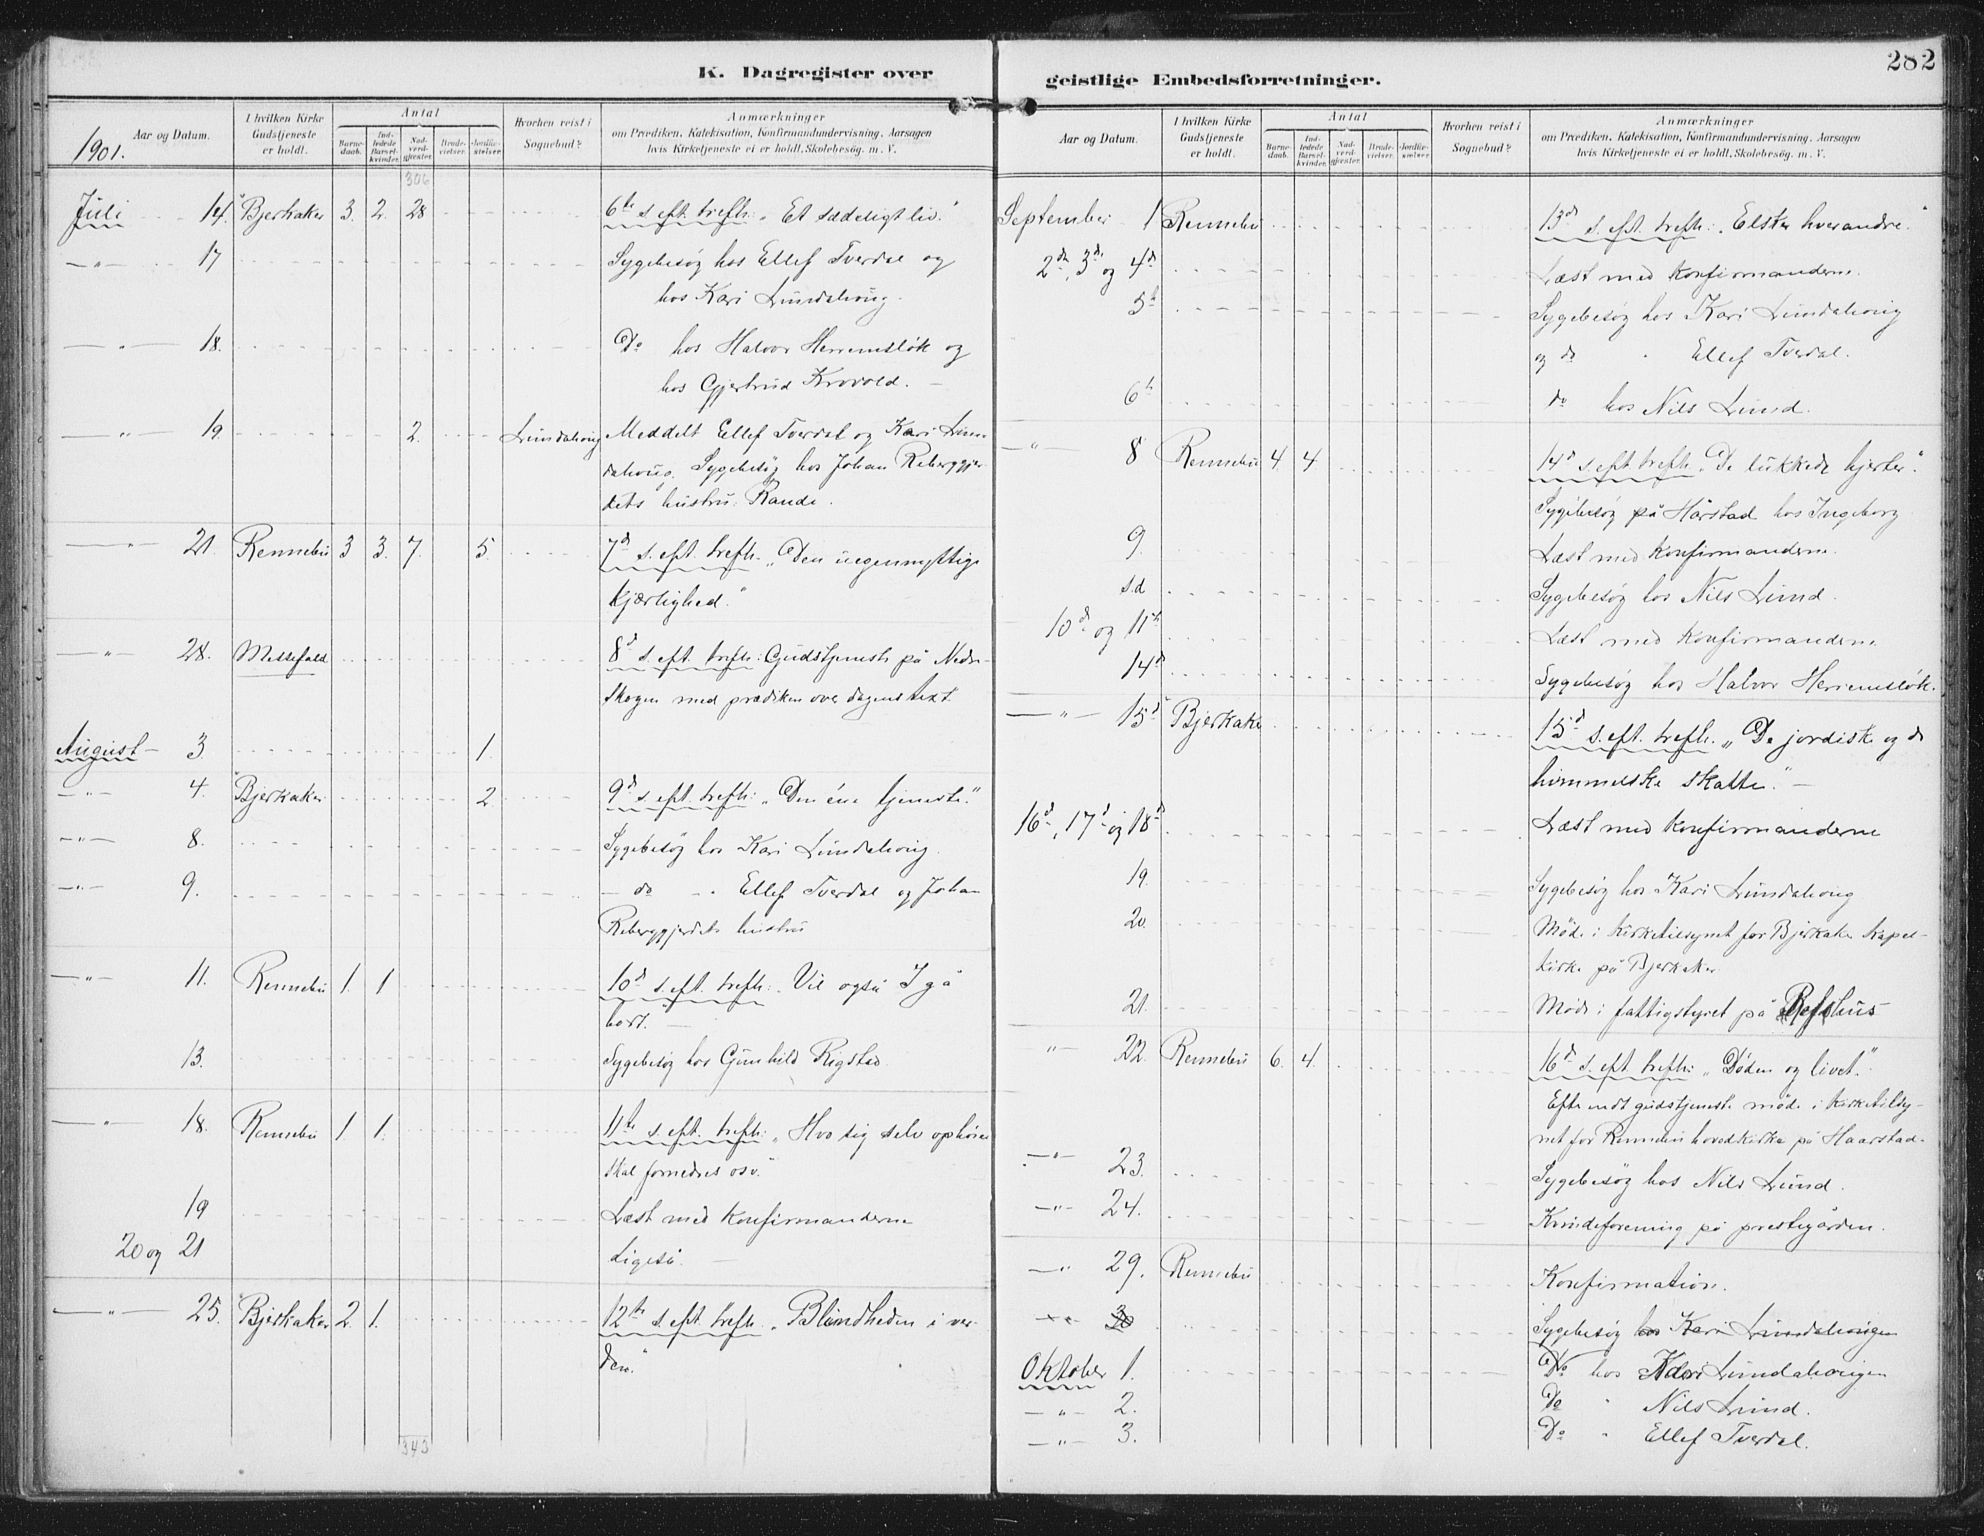 282
K. Dagregister over geistlige Embedsforretninger.
Aar og Datum. I hvilken Kirke Gudstjeneste er holdt. Antal Barnedaab. Indledede Barselkvinder. Nadverdgjester. Brudevielser. Jordfæstelser. Hvorhen reist i Sognebud? Anmærkninger om Prædiken, Katekisation, Konfirmandundervisning, Aarsagen hvis Kirketjeneste ei er holdt, Skolebesøg m. V.
1901.
306
Juli 14. Bjerkaker 3. 2. 28 6te s. eft. trefh: „Et sædeligt liv."
–"– 17 Sygebesøg hos Ellef Tverdal og
hos Kari Lundahoug.
–"– 18. Do hos Halvor Herremsløk og
hos Gjertrud Krovold. –
–"– 19. 2. Lundahoug Meddelt Ellef Tverdal og Kari Lun-
dahoug. Sygebesøg hos Johan Reberggjer-
dets hustru: Rande.
–"– 21. Rennebu 3 3. 7. 5 7d s. eft. trefh. „Den uegennyttige
kjærlighed."
–"– 28. Messefald 8d s. eft. trefh: Gudstjeneste på Nedre-
skogen med prædiken over dagens text
August – 3. 1.
–"– 4. Bjerkaker 2 9d s. eft. trefh: „Den éne tjeneste."
–"– 8. Sygebesøg hos Kari Lundahoug.
–"– 9. – do – " Ellef Tverdal og Johan
Reberggjerdets hustru
–"– 11. Rennebu 1. 1 10d s. eft. trefh: Vil også I gå
bort. –
13. Sygebesøg hos Gunhild Rigstad.
–"– 18. Rennebu 1. 1. 11te s. eft. trefh: „Hvo sig selv ophøier
skal fornedres osv."
19 Læst med Konfirmanderne
20 og 21 Ligeså. –
–"– 25. Bjerkaker 2. 1. 12te s. eft. trefh. „Blindheden i ver-
den."
343
Aar og Datum. I hvilken Kirke Gudstjeneste er holdt. Antal Barnedaab. Indledede Barselkvinder. Nadverdgjester. Brudevielser. Jordfæstelser. Hvorhen reist i Sognebud? Anmærkninger om Prædiken, Katekisation, Konfirmandundervisning, Aarsagen hvis Kirketjeneste ei er holdt, Skolebesøg m. V.
September 1 Rennebu 13d s. eft. trefh: „Elsker hverandre."
2d, 3d og 4d Læst med konfirmanderne.
5te Sygebesøg hos Kari Lundahoug
og do " Ellef Tverdal.
6te do hos Nils Lund.
–"– 8 Rennebu 4. 4 14d s. eft. trefh. „De lukkede hjerter."
Sygebesøg på Hårstad hos Ingeborg
9. Læst med konfirmanderne.
s.d Sygebesøg hos Nils Lund.
10d og 11te Læst med Konfirmanderne
14d Sygebesøg hos Halvor Herremsløk.
–"– 15d Bjerkaker 15d s. eft. trefh. „De jordiske og de
himmelske skatte." –
16d, 17d og 18d Læst med konfirmanderne
19. Sygebesøg hos Kari Lundahoug
20. Møde i kirketilsynet for Bjerkaker kapel-
kirke på Bjerkaker
21. Møde i fattigstyret på Refshus
–"– 22. Rennebu 6. 4. 16d s. eft. trefh: „Døden og livet."
Efter endt gudstjeneste møde i kirketilsy-
net for Rennebu hovedkirke på Haarstad.
–"– 23. Sygebesøg hos Nils Lund.
–"– 24. Kvindeforening på prestegården.
–"– 29. Rennebu Konfirmation.
–"– 30 Sygebesøg hos Kari Lundahougen
Oktober 1. Do hos Kari Lundahougen
–"– 2. Do " Nils Lund.
–"– 3. Do " Ellef Tverdal.